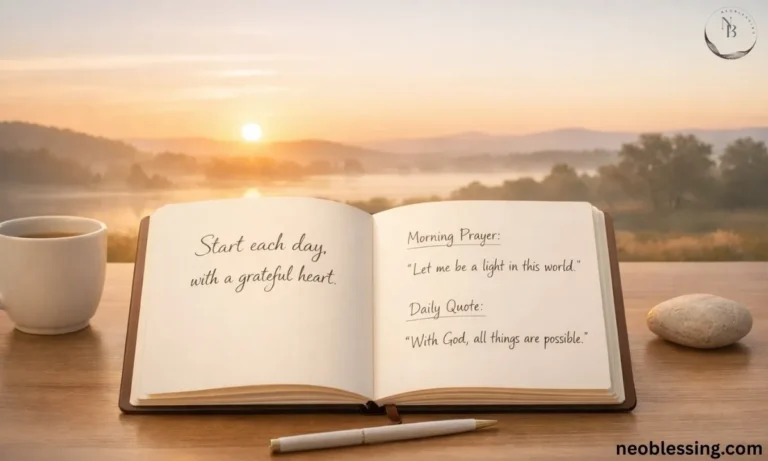 Start each day,
with a grateful heart.
Morning Prayer:
"Let me be a light in this world."
Daily Quote:
"With God, all things are possible."
NEOBLESSING
NB
neoblessing.com